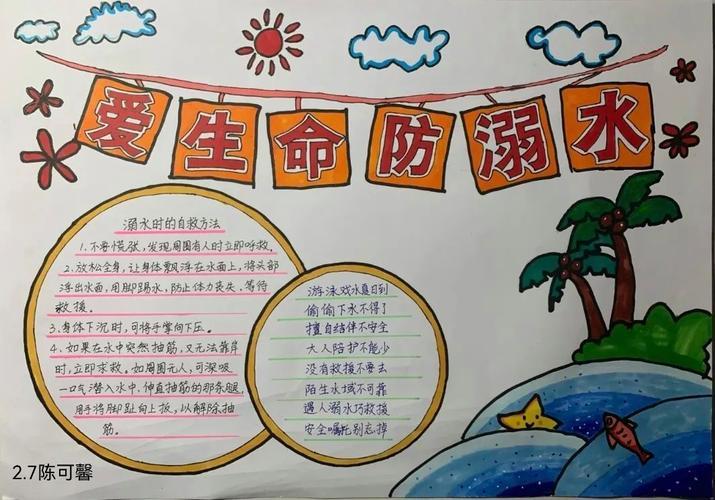 爱生命防溺水
溺水时的自救方法
1.不要慌张,发现周围有人时立即呼救,
2.放松全身,让身体飘浮在水面上,将头部
浮出水面,用脚踢水,防止体力丧失、等待
救援。
3.身体下沉时,可将手掌向下压。
4.如果在水中突然抽筋,又无法靠岸
时,立即求救,如周围无人,可深吸
一口气潜入水中,伸直抽筋的那条腿,
用手将脚趾向上扳,以解除抽
筋。
游泳戏水夏日到
偷偷下水不得了
擅自结伴不安全
大人陪护不能少
没有救援不要去
陌生水域不可靠
遇人溺水巧救援
安全嘱托别忘掉
2.7陈可馨